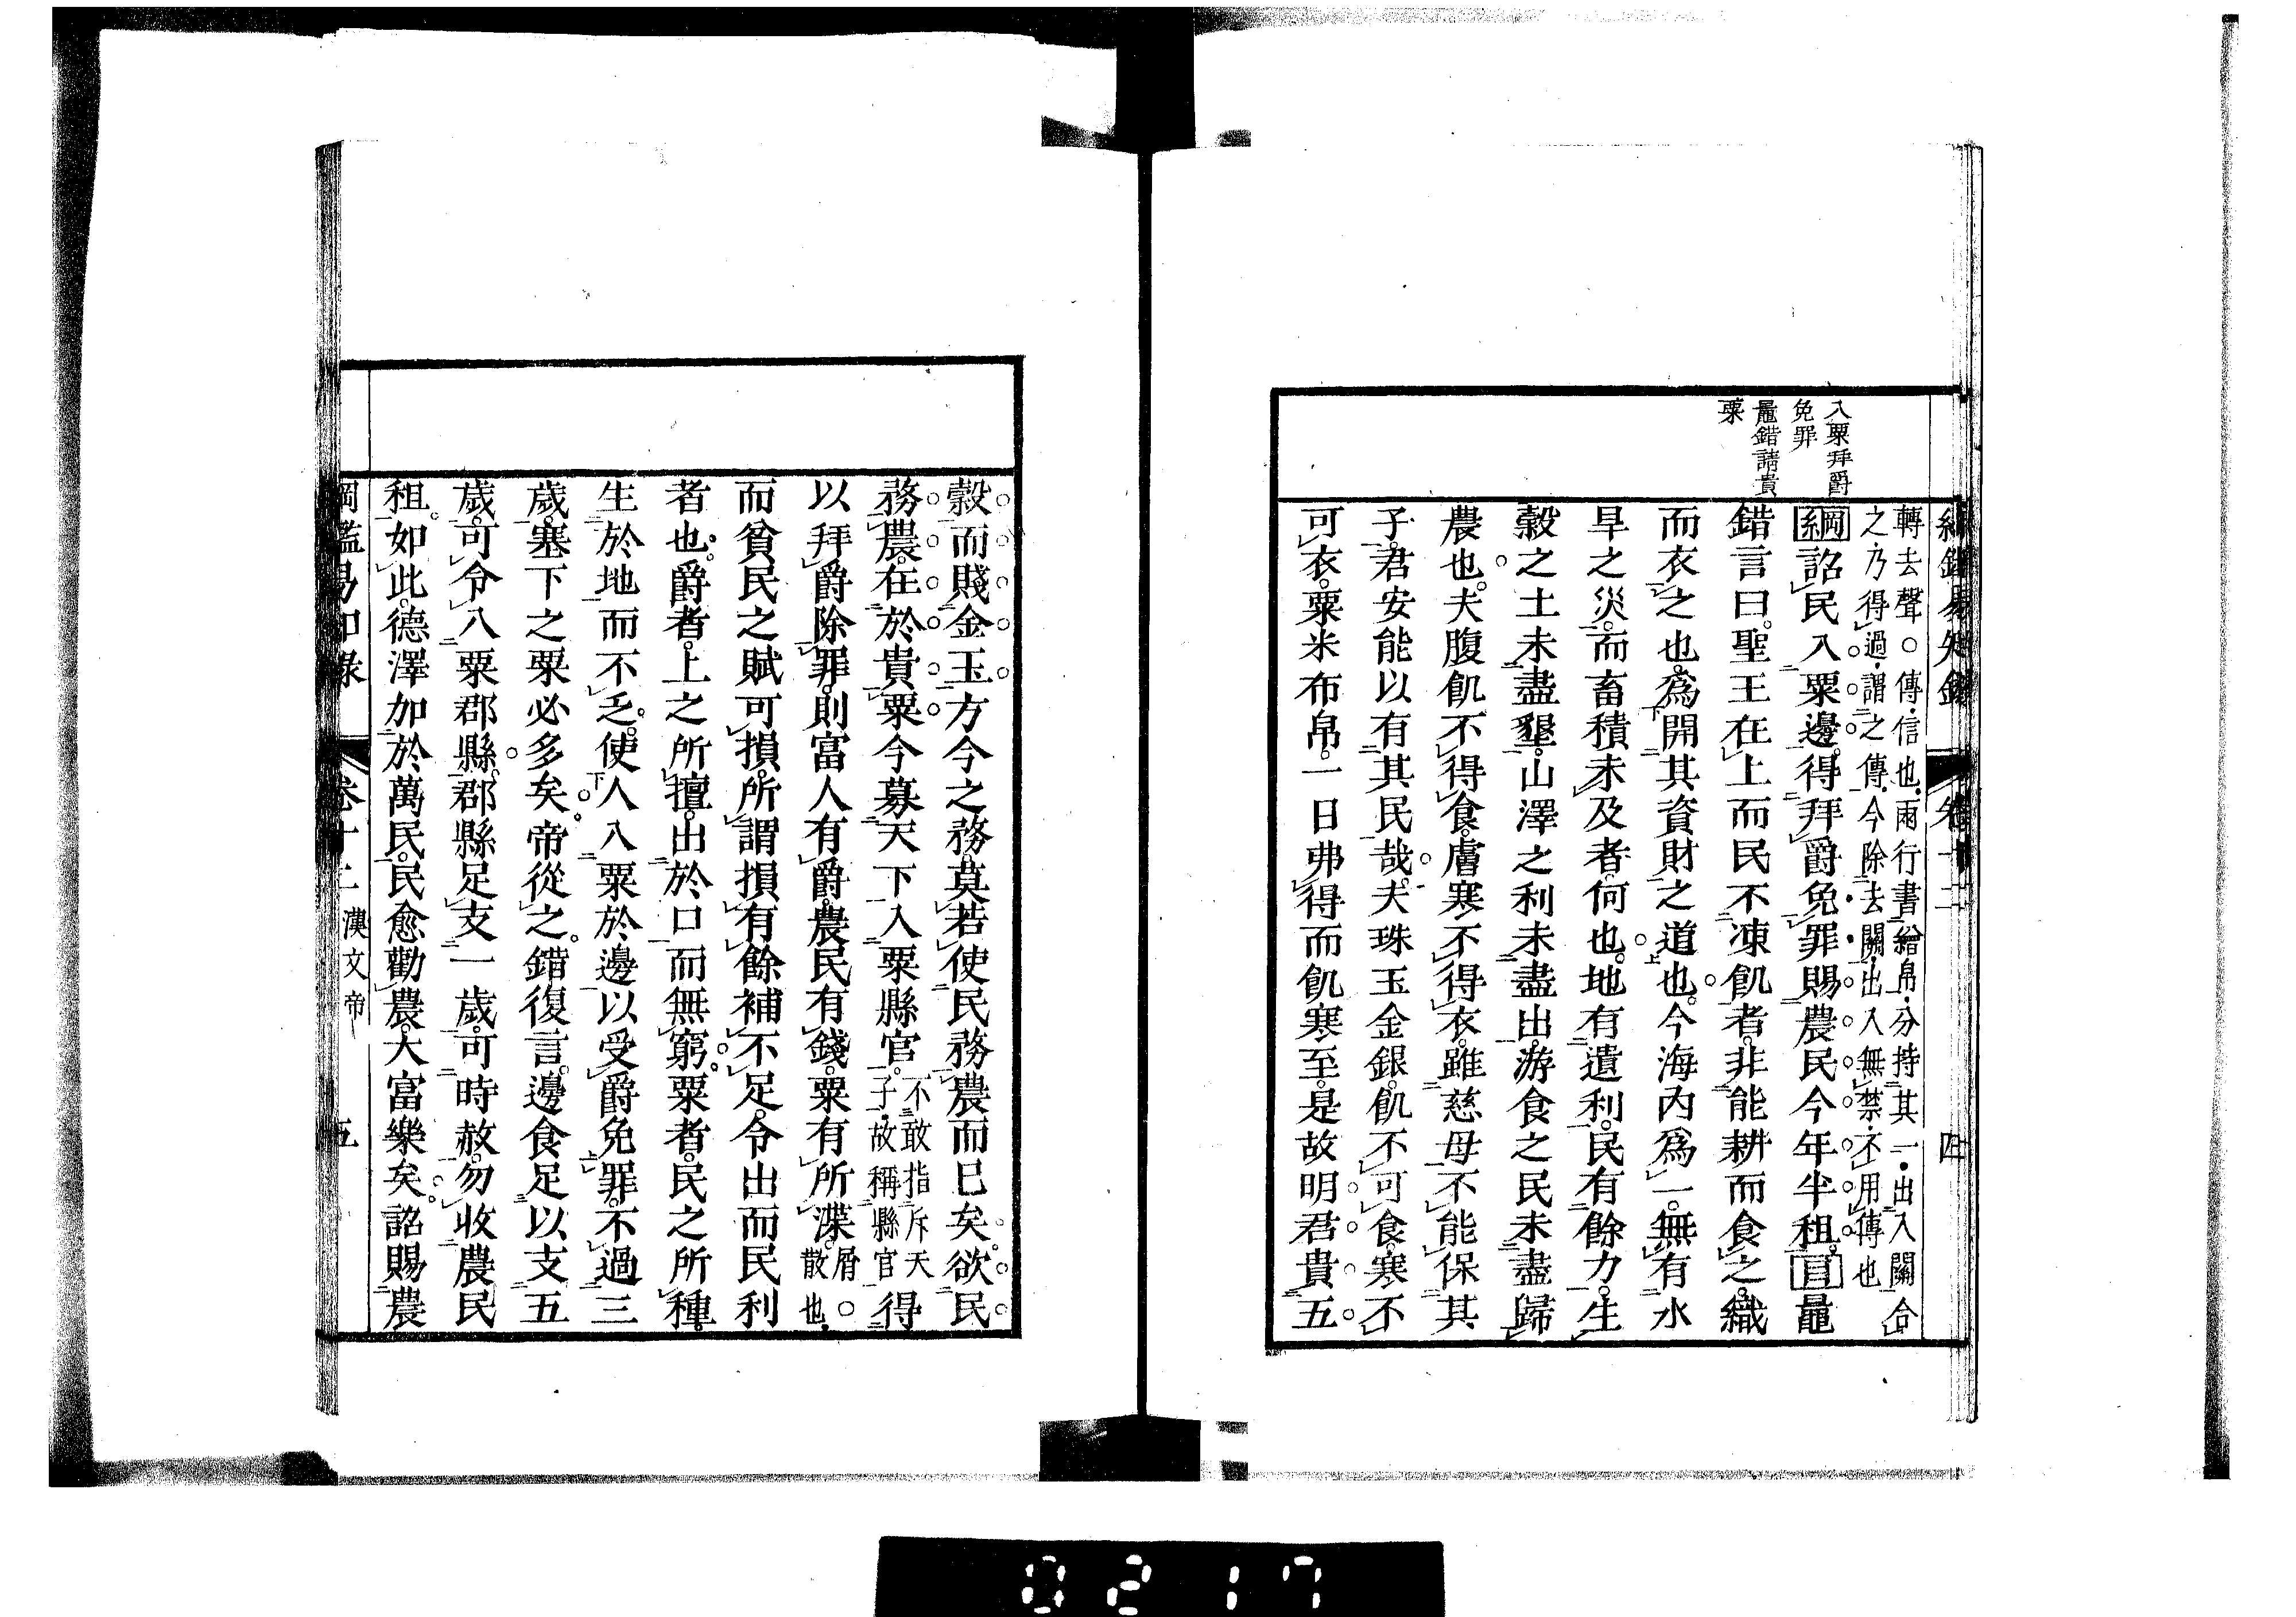 入粟拜爵
免罪
鼂錯請貴
粟
綱鑑易知錄 卷十二 四
轉去聲○傳信也兩行書繒帛分持其一出入關合
之乃得過謂之傳今除去關出入無禁不用傳也
綱詔民入粟邊得拜爵免罪賜農民今年半租目鼂
錯言曰聖王在上而民不凍飢者非能耕而食之織
而衣之也為開其資財之道也今海內為一無有水
旱之災而畜積未及者何也地有遺利民有餘力生
穀之土未盡墾山澤之利未盡出游食之民未盡歸
農也夫腹飢不得食膚寒不得衣雖慈母不能保其
子君安能以有其民哉夫珠玉金銀飢不可食寒不
可衣粟米布帛一日弗得而飢寒至是故明君貴五
穀而賤金玉方今之務莫若使民務農而已矣欲民
務農在於貴粟今募天下入粟縣官不敢指斥天子故稱縣官得
以拜爵除罪則富人有爵農民有錢粟有所渫屑○散也
而貧民之賦可損所謂損有餘補不足令出而民利
者也爵者上之所擅出於口而無窮粟者民之所種
生於地而不乏使人入粟於邊以受爵免罪不過三
歲塞下之粟必多矣帝從之錯復言邊食足以支五
歲可令入粟郡縣郡縣足支一歲可時赦勿收農民
租如此德澤加於萬民民愈勸農大富樂矣詔賜農
綱鑑易知錄 卷十二 漢文帝 五
0217